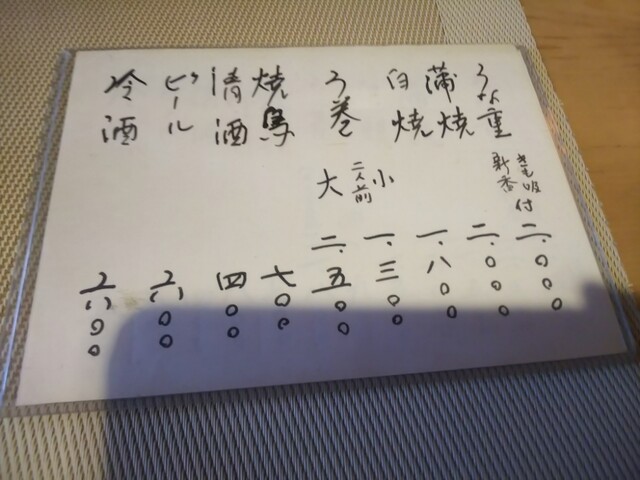 うな重 きも吸付 新香 二、〇〇〇
蒲焼 二、〇〇〇
白焼 一、八〇〇
う巻 小 一、三〇〇
二人前 大 二、五〇〇
焼鳥 七〇〇
清酒 四〇〇
ビール 六〇〇
冷酒 六〇〇